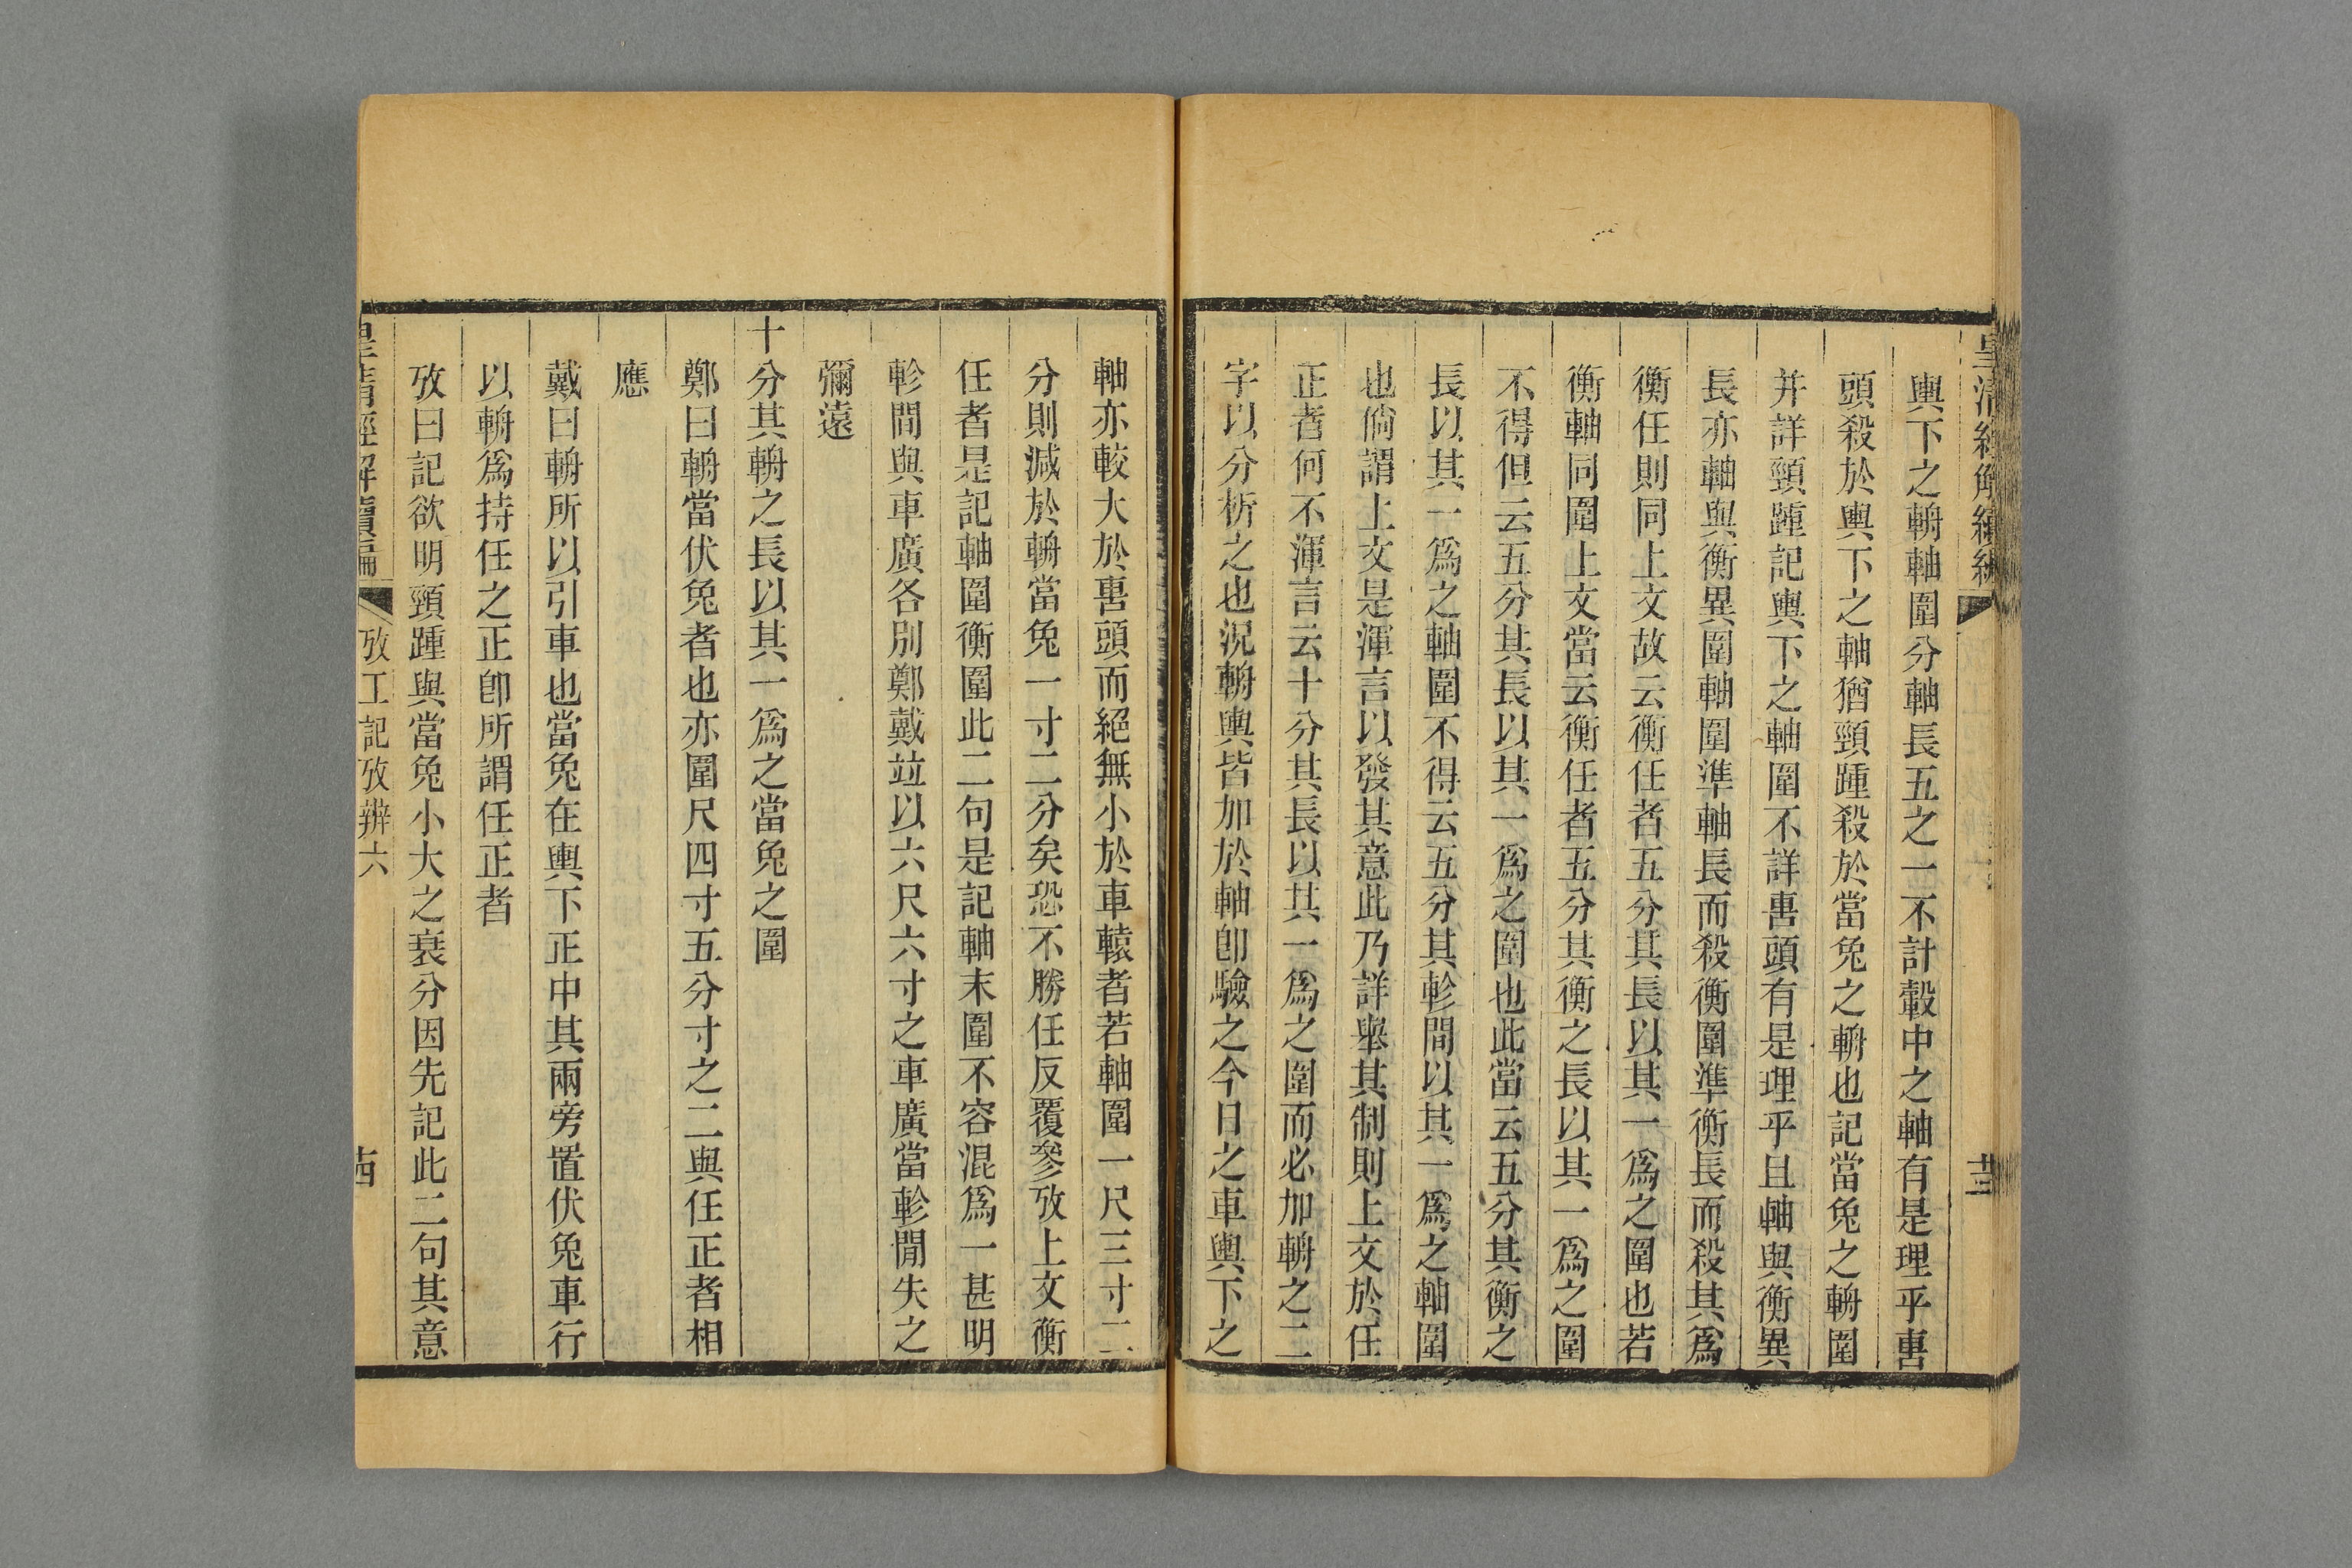 皇清經解續編
十三
輿下之輈軸圍分軸長五之一不計轂中之軸有是理乎軎
頭殺於輿下之軸猶頸踵殺於當兔之輈也記當兔之輈圍
并詳頸踵記輿下之軸圍不詳軎頭有是理乎且軸與衡異
長亦軸與衡異圍軸圍準軸長而殺衡圍準衡長而殺其爲
衡任則同上文故云衡任者五分其長以其一爲之圍也若
衡軸同圍上文當云衡任者五分其衡之長以其一爲之圍
不得但云五分其長以其一爲之圍也此當云五分其衡之
長以其一爲之軸圍不得云五分其軫間以其一爲之軸圍
也倘謂上文是渾言以發其意此乃詳舉其制則上文於任
正者何不渾言云十分其長以其一爲之圍而必加輈之二
字以分析之也況輈輿皆加於軸卽驗之今日之車輿下之
軸亦較大於軎頭而絕無小於車轅者若軸圍一尺三寸二
分則減於輈當兔一寸二分矣恐不勝任反覆參攷上文衡
任者是記軸圍衡圍此二句是記軸末圍不容混爲一甚明
軫間與車廣各別鄭戴竝以六尺六寸之車廣當軫閒失之
彌遠
十分其輈之長以其一爲之當兔之圍
鄭曰輈當伏兔者也亦圍尺四寸五分寸之二與任正者相
應
戴曰輈所以引車也當兔在輿下正中其兩旁置伏兔車行
以輈爲持任之正卽所謂任正者
攷曰記欲明頸踵與當兔小大之衰分因先記此二句其意
皇清經解續編
攷工記攷辨六
十四